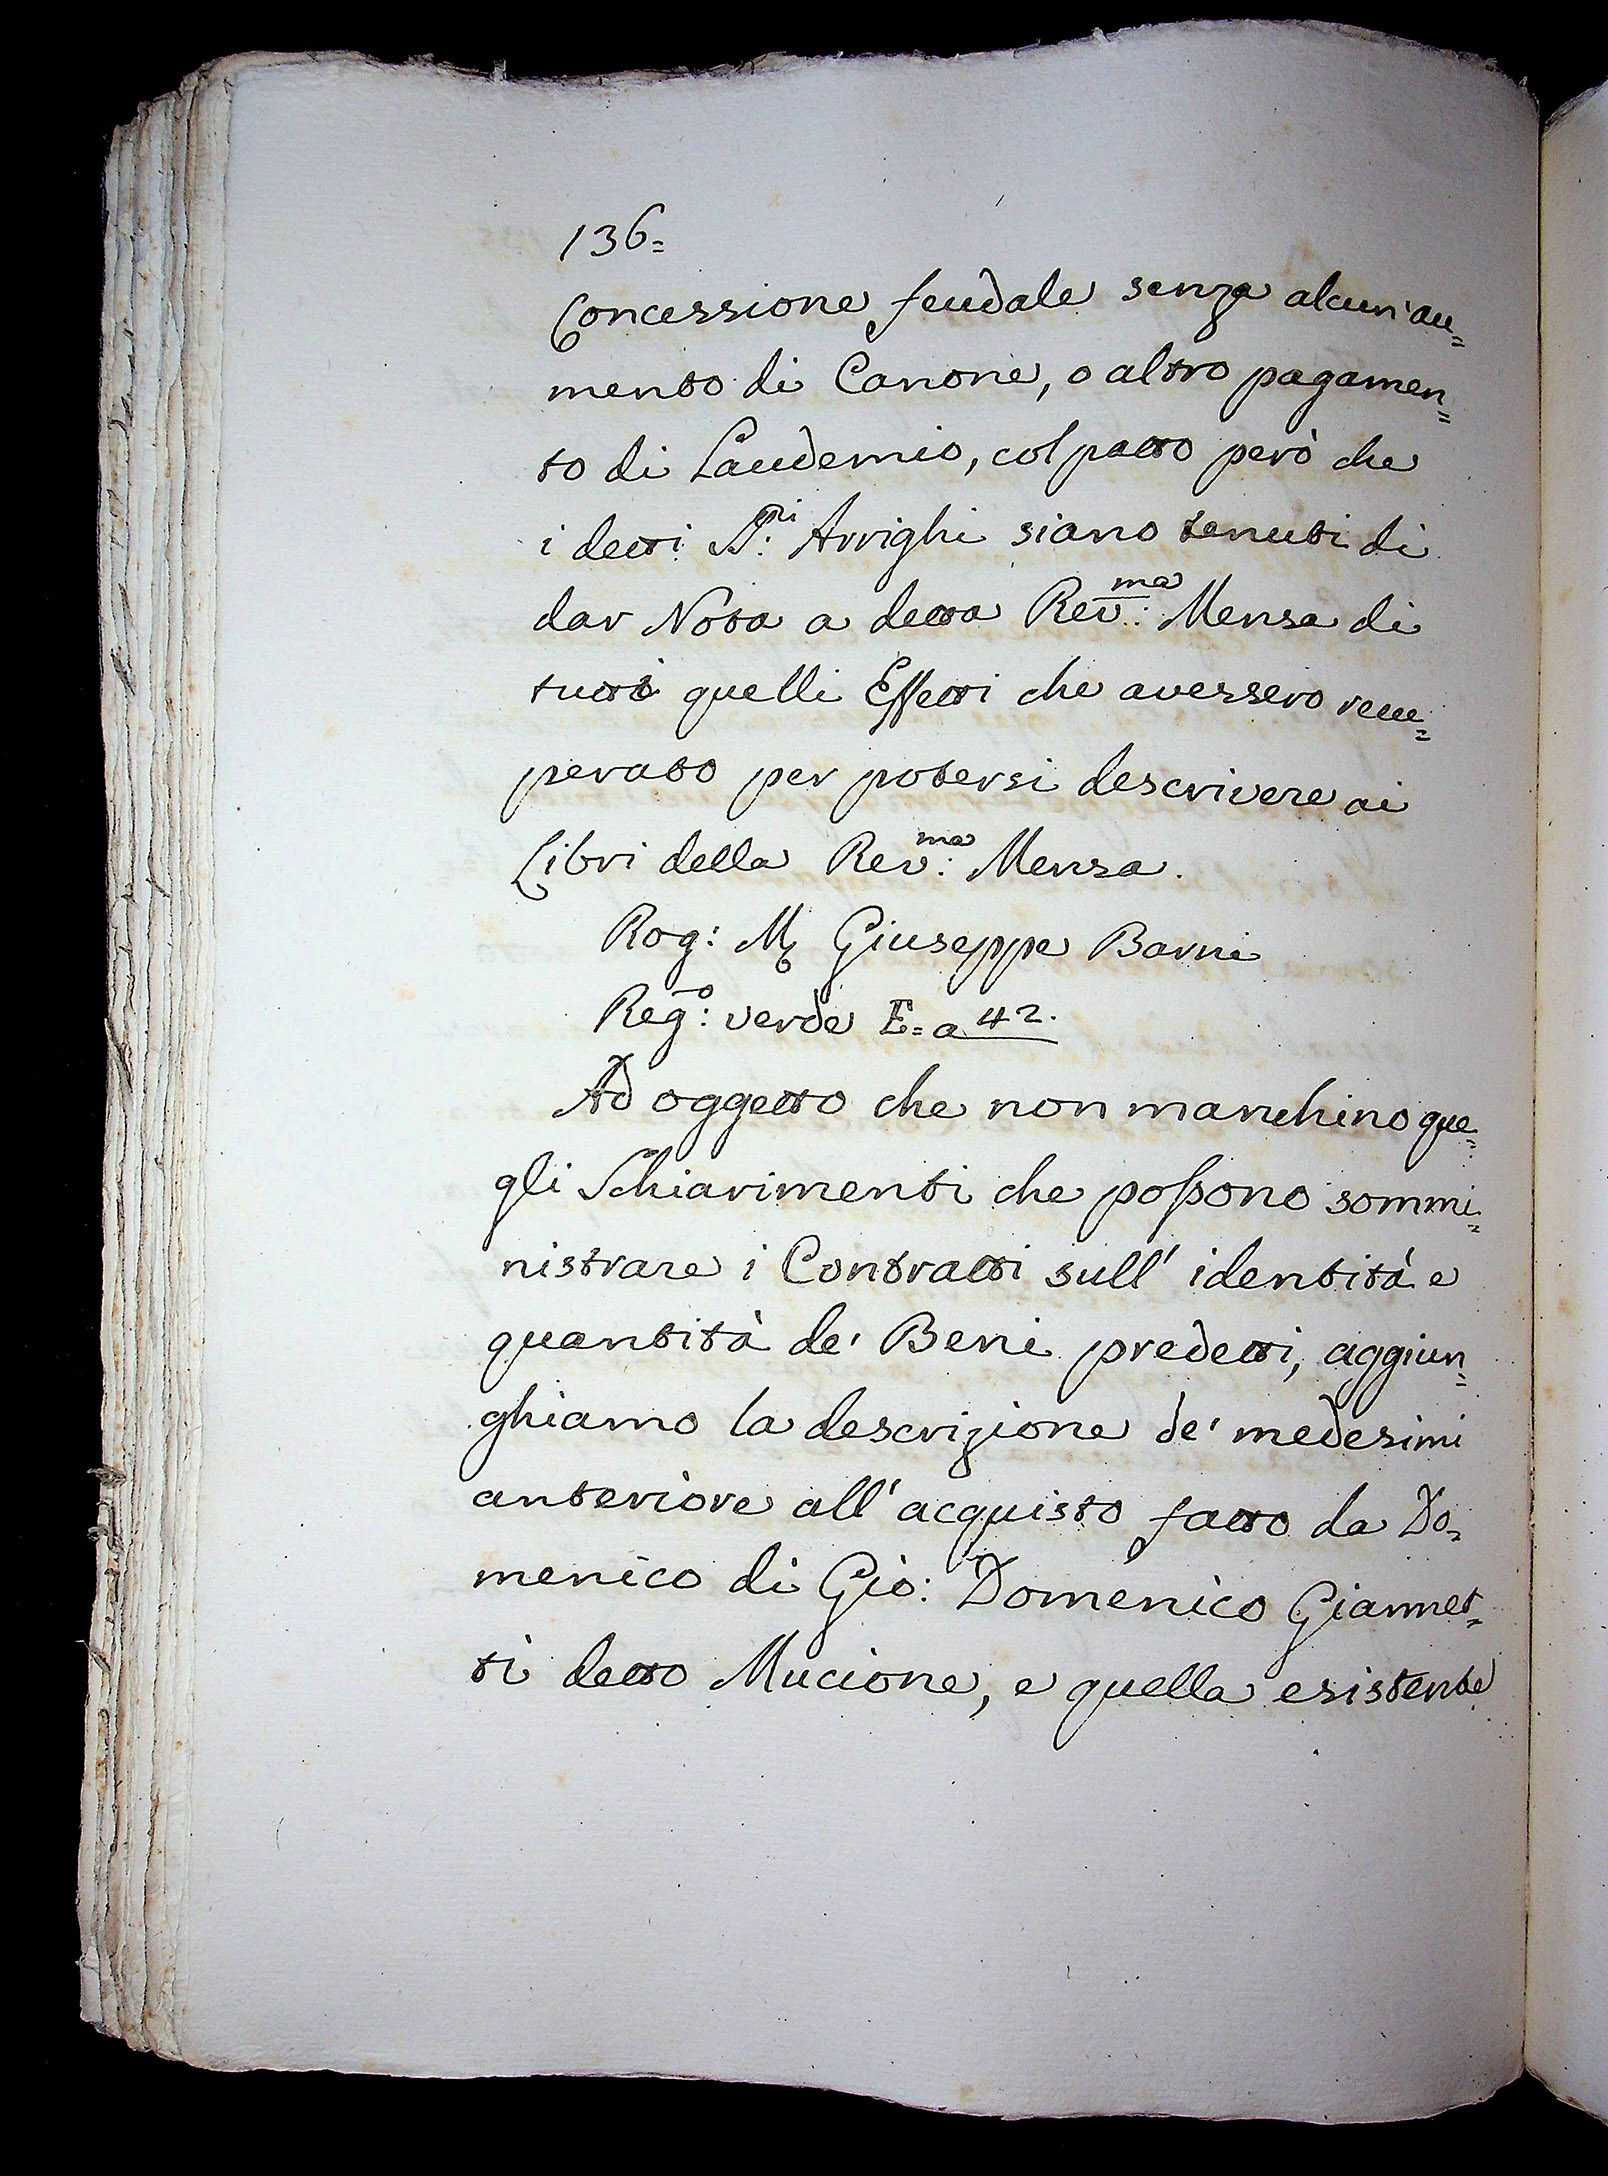 136=
Concessione feudale senza alcun' au=
mento di Canone, o altro pagamen=
to di Laudemio, col patto però che
i detti SS.ri Arrighi siano tenuti di
dar Nota a detta Rev:ma Mensa di
tutti quelli Effetti che avessero recu=
perato per potersi descrivere ai
Libri della Rev:ma Mensa.
Rog: M Giuseppe Barni
Reg:o verde E= a 42.
Ad oggetto che non manchino que=
gli Schiarimenti che possono sommi=
nistrare i Contratti sull' identità e
quantità de' Beni predetti, aggiun=
ghiamo la descrizione de' medesimi
anteriore all' acquisto fatto da Do=
menico di Gio: Domenico Giannet=
ti detto Mucione, e quella esistente